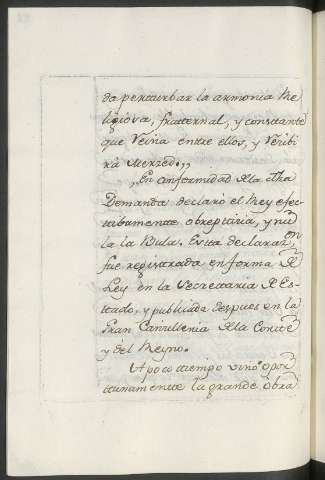 da perturbar la armonia Re
ligiosa, fraternal, y constante
que Reina entre ellos, y Recibi
rà Merced.,,
,,En conformidad de la dha
Demanda declarò el Rey efec
tivamente obrepticia, y nu
la la Bula. Esta declaraz.on
fue registrada en forma de
Ley en la Secretaria de Es-
tado, y publicada despues en la
Gran Cancilleria de la Corte
y del Reyno.
A poco tiempo vino opor
tunamente la grande obra